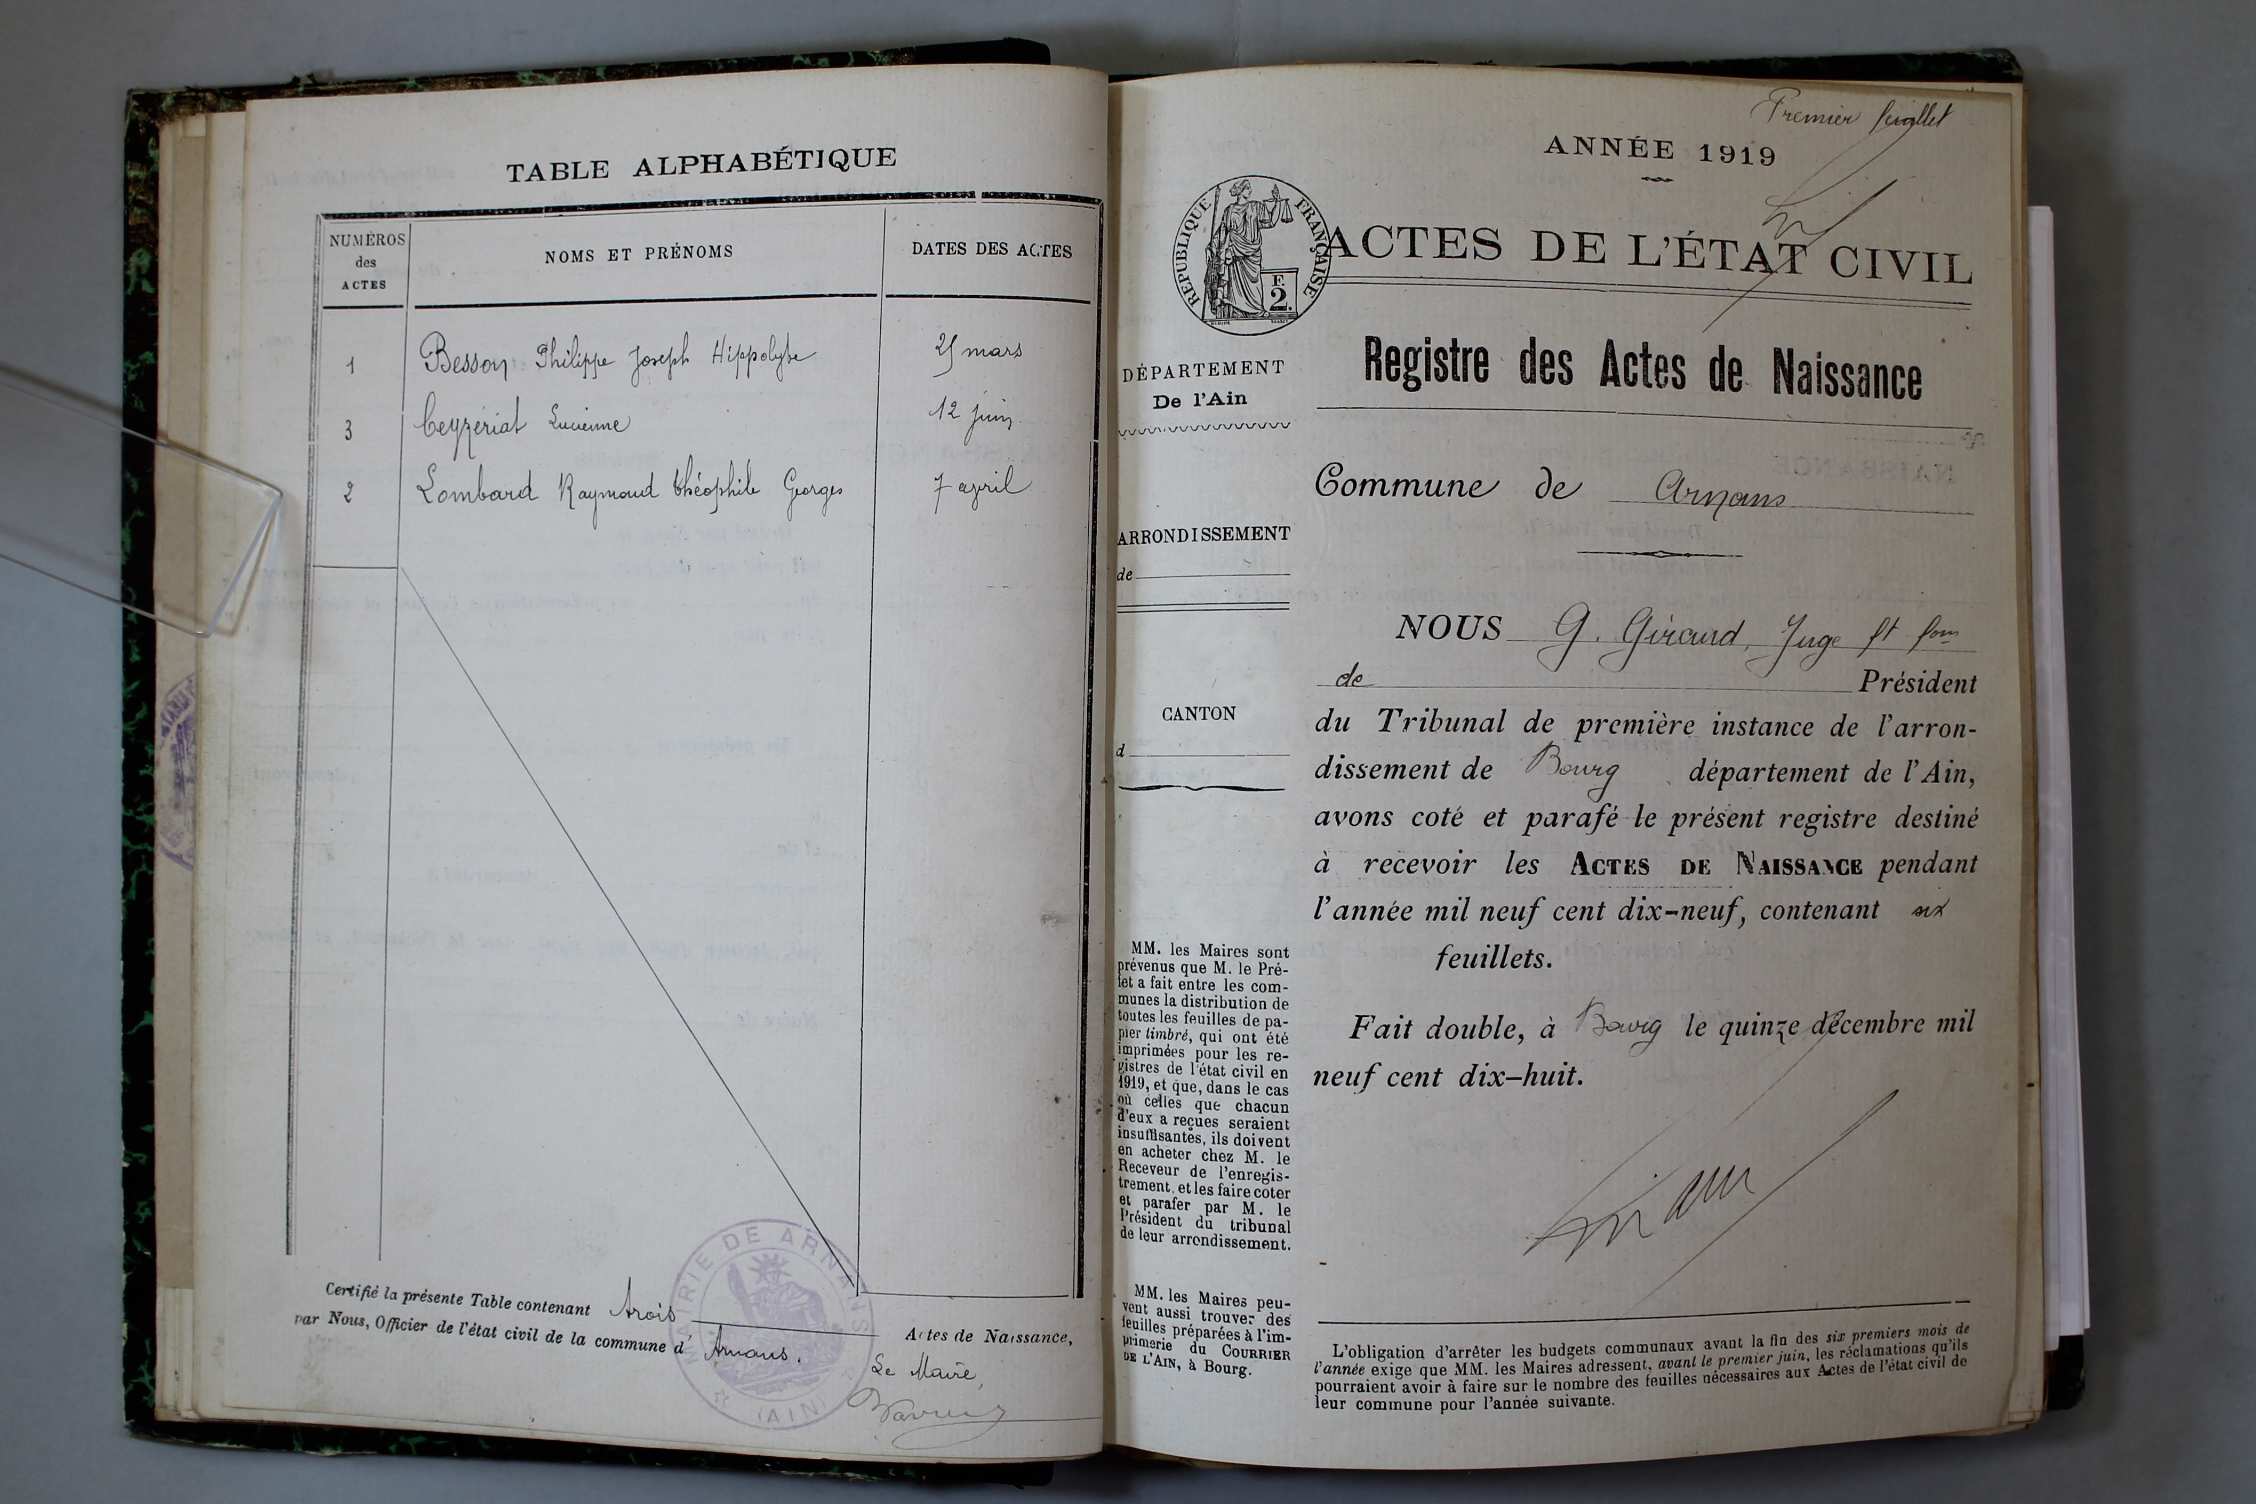 TABLE ALPHABÉTIQUE
NUMÉROS
des
ACTES
NOMS ET PRÉNOMS
DATES DES ACTES
1 Besson Philippe Joseph Hippolyte 25 mars
3 Ceyzériat Lucienne 12 juin
2 Lombard Raymond Théophile Georges 7 april
Certifié la présente Table contenant trois Actes de Naissance,
par Nous, Officier de l'état civil de la commune d' Arnans.
Le Maire,
MAIRIE DE ARNANS
(AIN)
Premier feuillet
ANNÉE 1919
RÉPUBLIQUE FRANÇAISE
F.
2.
ACTES DE L'ÉTAT CIVIL
Registre des Actes de Naissance
DÉPARTEMENT
De l'Ain
ARRONDISSEMENT
de
CANTON
d
MM. les Maires sont
prévenus que M. le Pré-
fet a fait entre les com-
munes la distribution de
toutes les feuilles de pa-
pier timbré, qui ont été
imprimées pour les re-
gistres de l'état civil en
1919, et que, dans le cas
où celles que chacun
d'eux a reçues seraient
insuffisantes, ils doivent
en acheter chez M. le
Receveur de l'enregis-
trement, et les faire coter
et parafer par M. le
Président du tribunal
de leur arrondissement.
MM. les Maires peu-
vent aussi trouver des
feuilles préparées à l'im-
primerie du COURRIER
DE L'AIN, à Bourg.
Commune de Arnans
NOUS G. Girard, Juge ft fons
de Président
du Tribunal de première instance de l'arron-
dissement de Bourg département de l'Ain,
avons coté et parafé le présent registre destiné
à recevoir les ACTES DE NAISSANCE pendant
l'année mil neuf cent dix-neuf, contenant six
feuillets.
Fait double, à Bourg le quinze décembre mil
neuf cent dix-huit.
L'obligation d'arrêter les budgets communaux avant la fin des six premiers mois de
l'année exige que MM. les Maires adressent, avant le premier juin, les réclamations qu'ils
pourraient avoir à faire sur le nombre des feuilles nécessaires aux Actes de l'état civil de
leur commune pour l'année suivante.